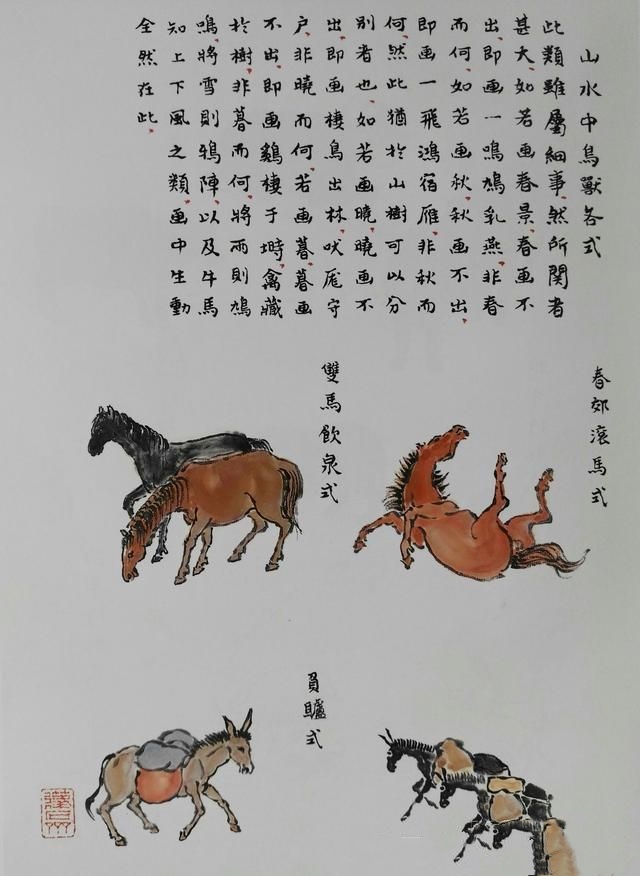 山水中鳥獸各式
此類雖屬細事、然所関者
甚大、如若画春景、春画不
出、即画一鳴鳩乳燕、非春
而何、如若画秋、秋画不出、
即画一飛鴻宿雁、非秋而
何、然此猶於山樹可以分
別者也、如若画曉、曉画不
出、即画棲鳥出林、吠厖守
户、非曉而何、若画暮、暮画
不出、即画鷄棲于塒、禽藏
於樹、非暮而何、將雨則鳩
鳴、將雪則鴉陣、以及牛馬
知上下風之類、画中生動
全然在此、
春郊滾馬式
雙馬飲泉式
負驢式